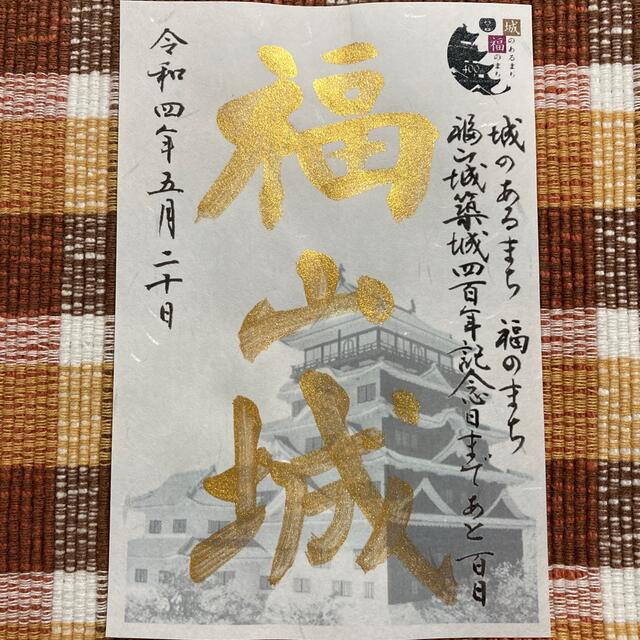 城のあるまち
福のまち
400
城のあるまち 福のまち
福山城築城四百年記念日まであと百日
福山城
令和四年五月二十日